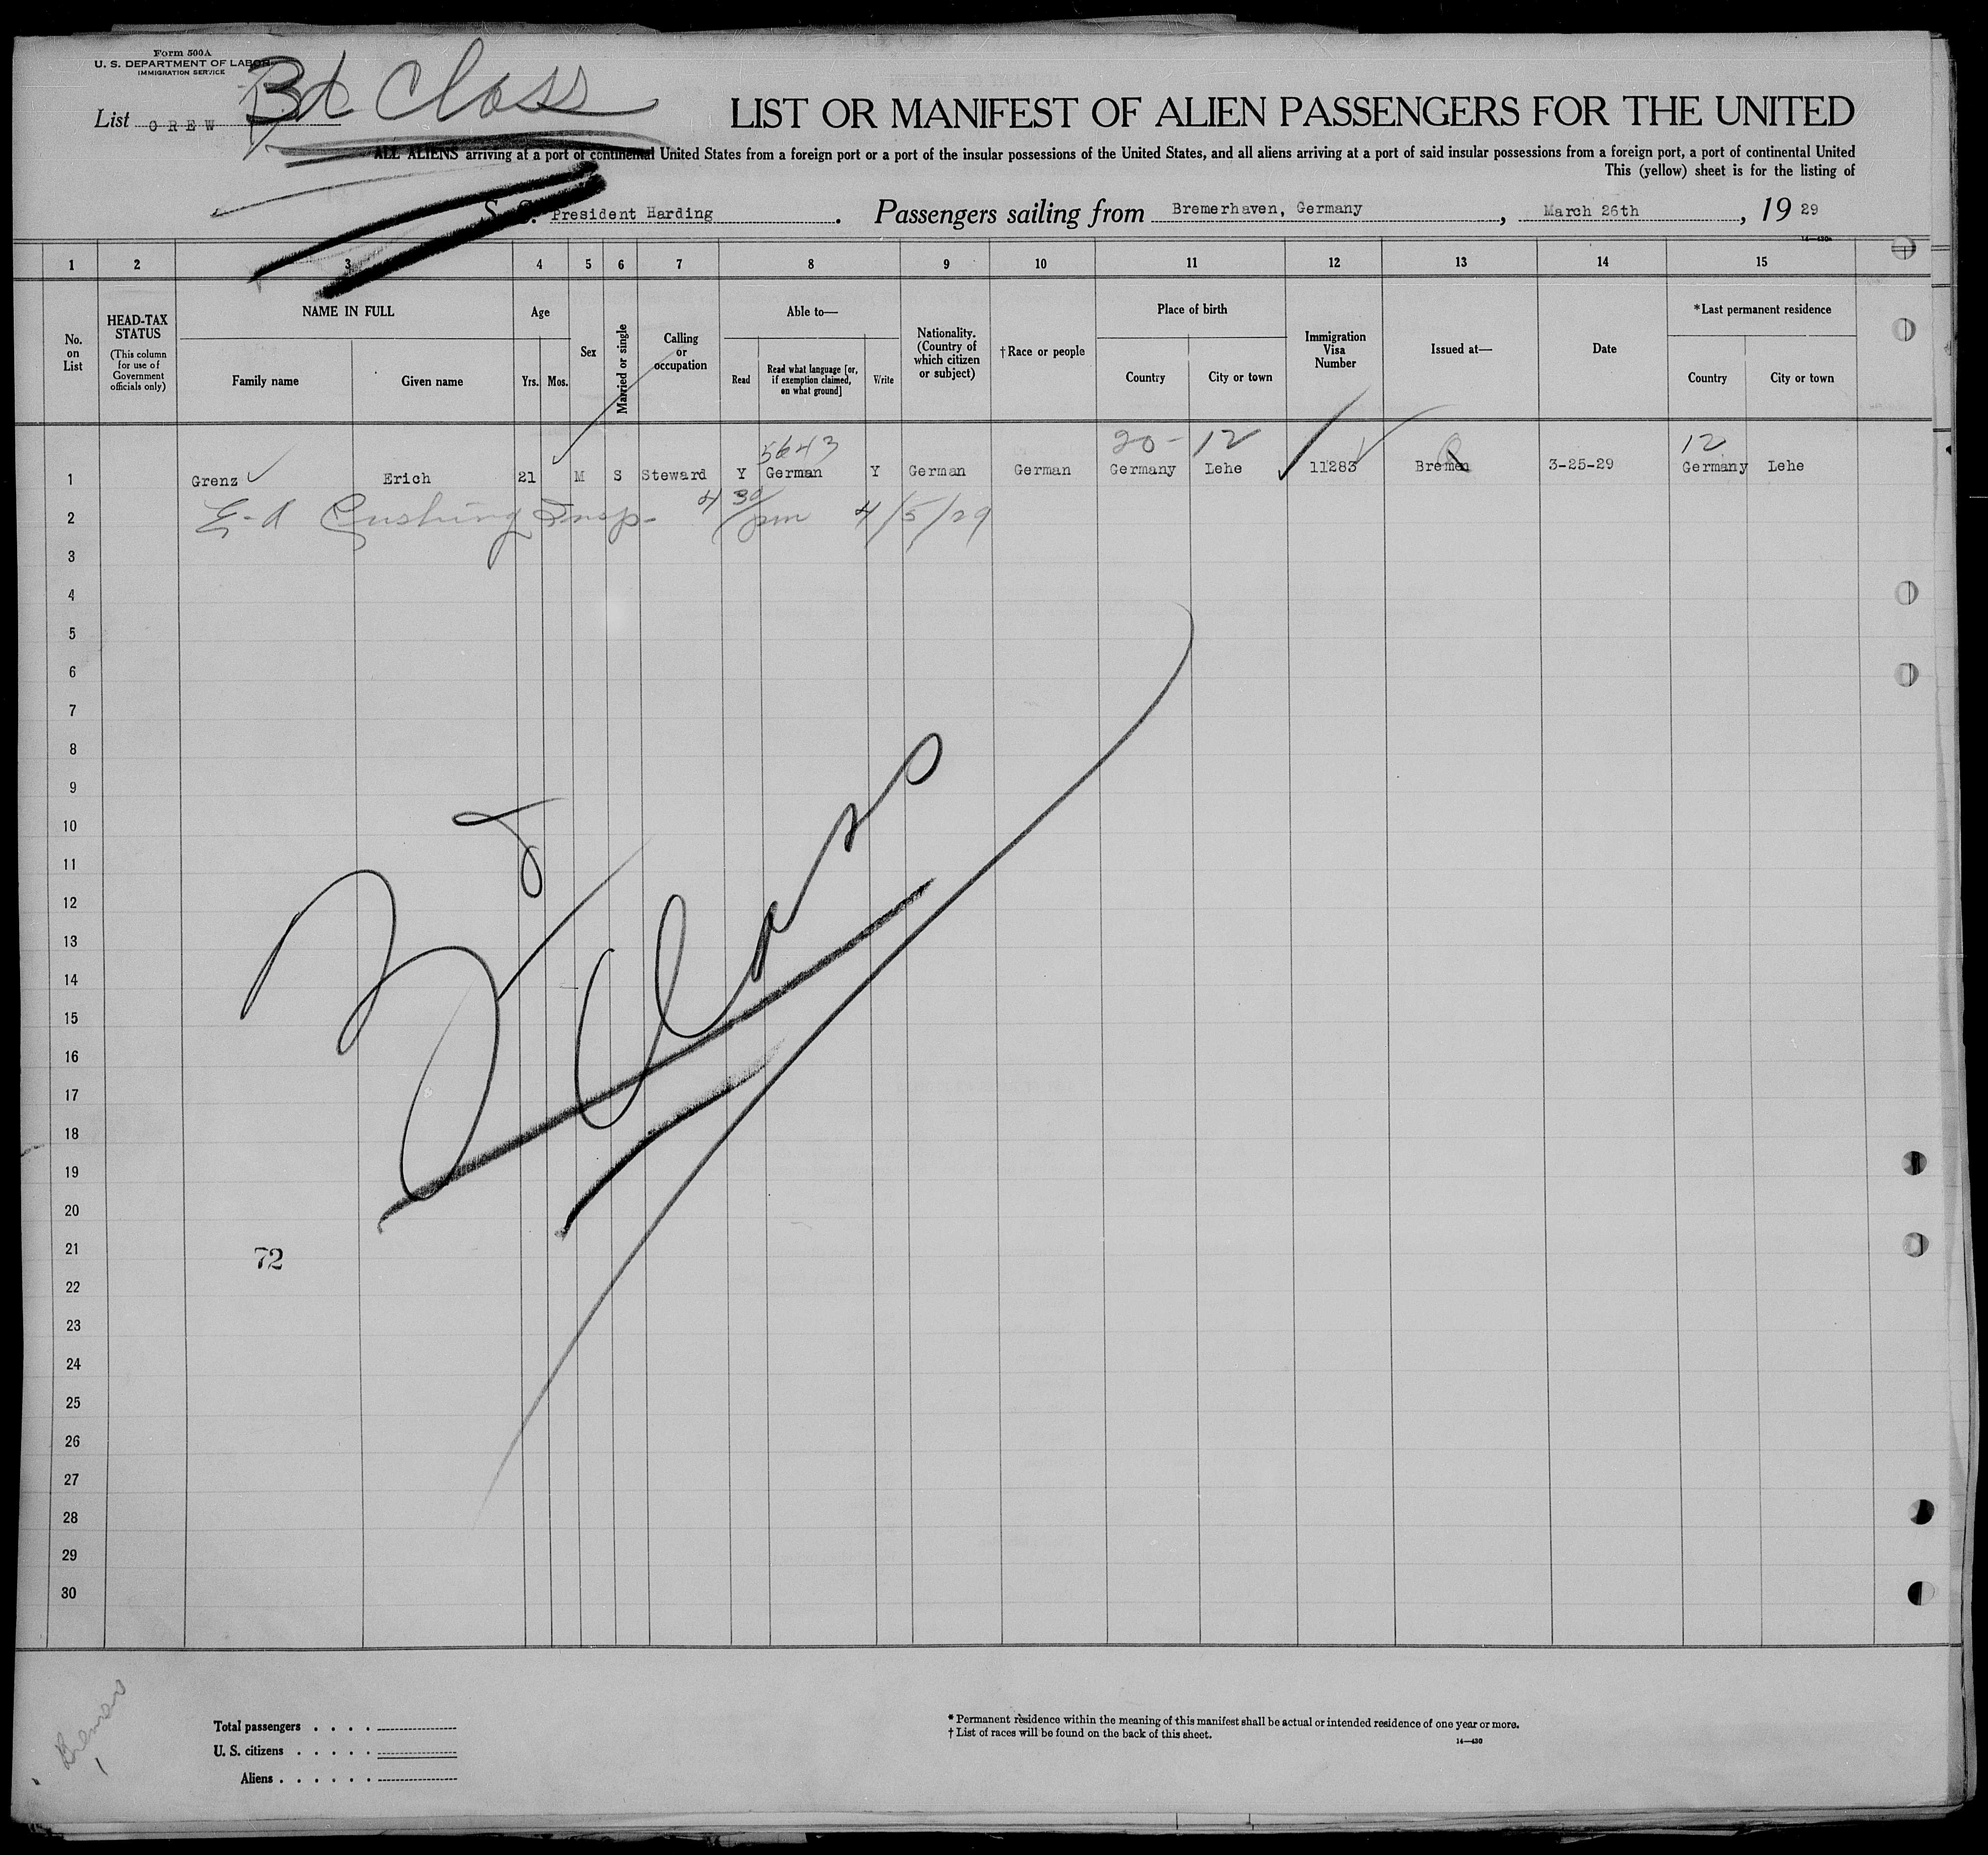 Form 500A
U. S. DEPARTMENT OF LABOR
IMMIGRATION SERVICE
3d Class
List CREW
LIST OR MANIFEST OF ALIEN PASSENGERS FOR THE UNITED
ALL ALIENS arriving at a port of continental United States from a foreign port or a port of the insular possessions of the United States, and all aliens arriving at a port of said insular possessions from a foreign port, a port of continental United
This (yellow) sheet is for the listing of
S. S. President Harding. Passengers sailing from Bremerhaven, Germany, March 26th, 19 29
14—430a
1 2 3 4 5 6 7 8 9 10 11 12 13 14 15
No. on List
HEAD-TAX STATUS
(This column for use of Government officials only)
NAME IN FULL
Family name Given name
Age
Yrs. Mos.
Sex
Married or single
Calling or occupation
Able to—
Read Read what language [or, if exemption claimed, on what ground] Write
Nationality. (Country of which citizen or subject)
†Race or people
Place of birth
Country City or town
Immigration Visa Number
Issued at—
Date
*Last permanent residence
Country City or town
5643 20- 12 12
1 Grenz Erich 21 M S Steward Y German Y German German Germany Lehe 11283 Bremen 3-25-29 Germany Lehe
2 E-A Cushing Insp- 4 30/pm 4/5/29
3
4
5
6
7
8
9
10
11
12
13
14
15
16
17
18
19
20
21
22
23
24
25
26
27
28
29
30
3d Class
72
Total passengers . . . .
U. S. citizens . . . . .
Aliens . . . . . .
* Permanent residence within the meaning of this manifest shall be actual or intended residence of one year or more.
† List of races will be found on the back of this sheet.
14—430